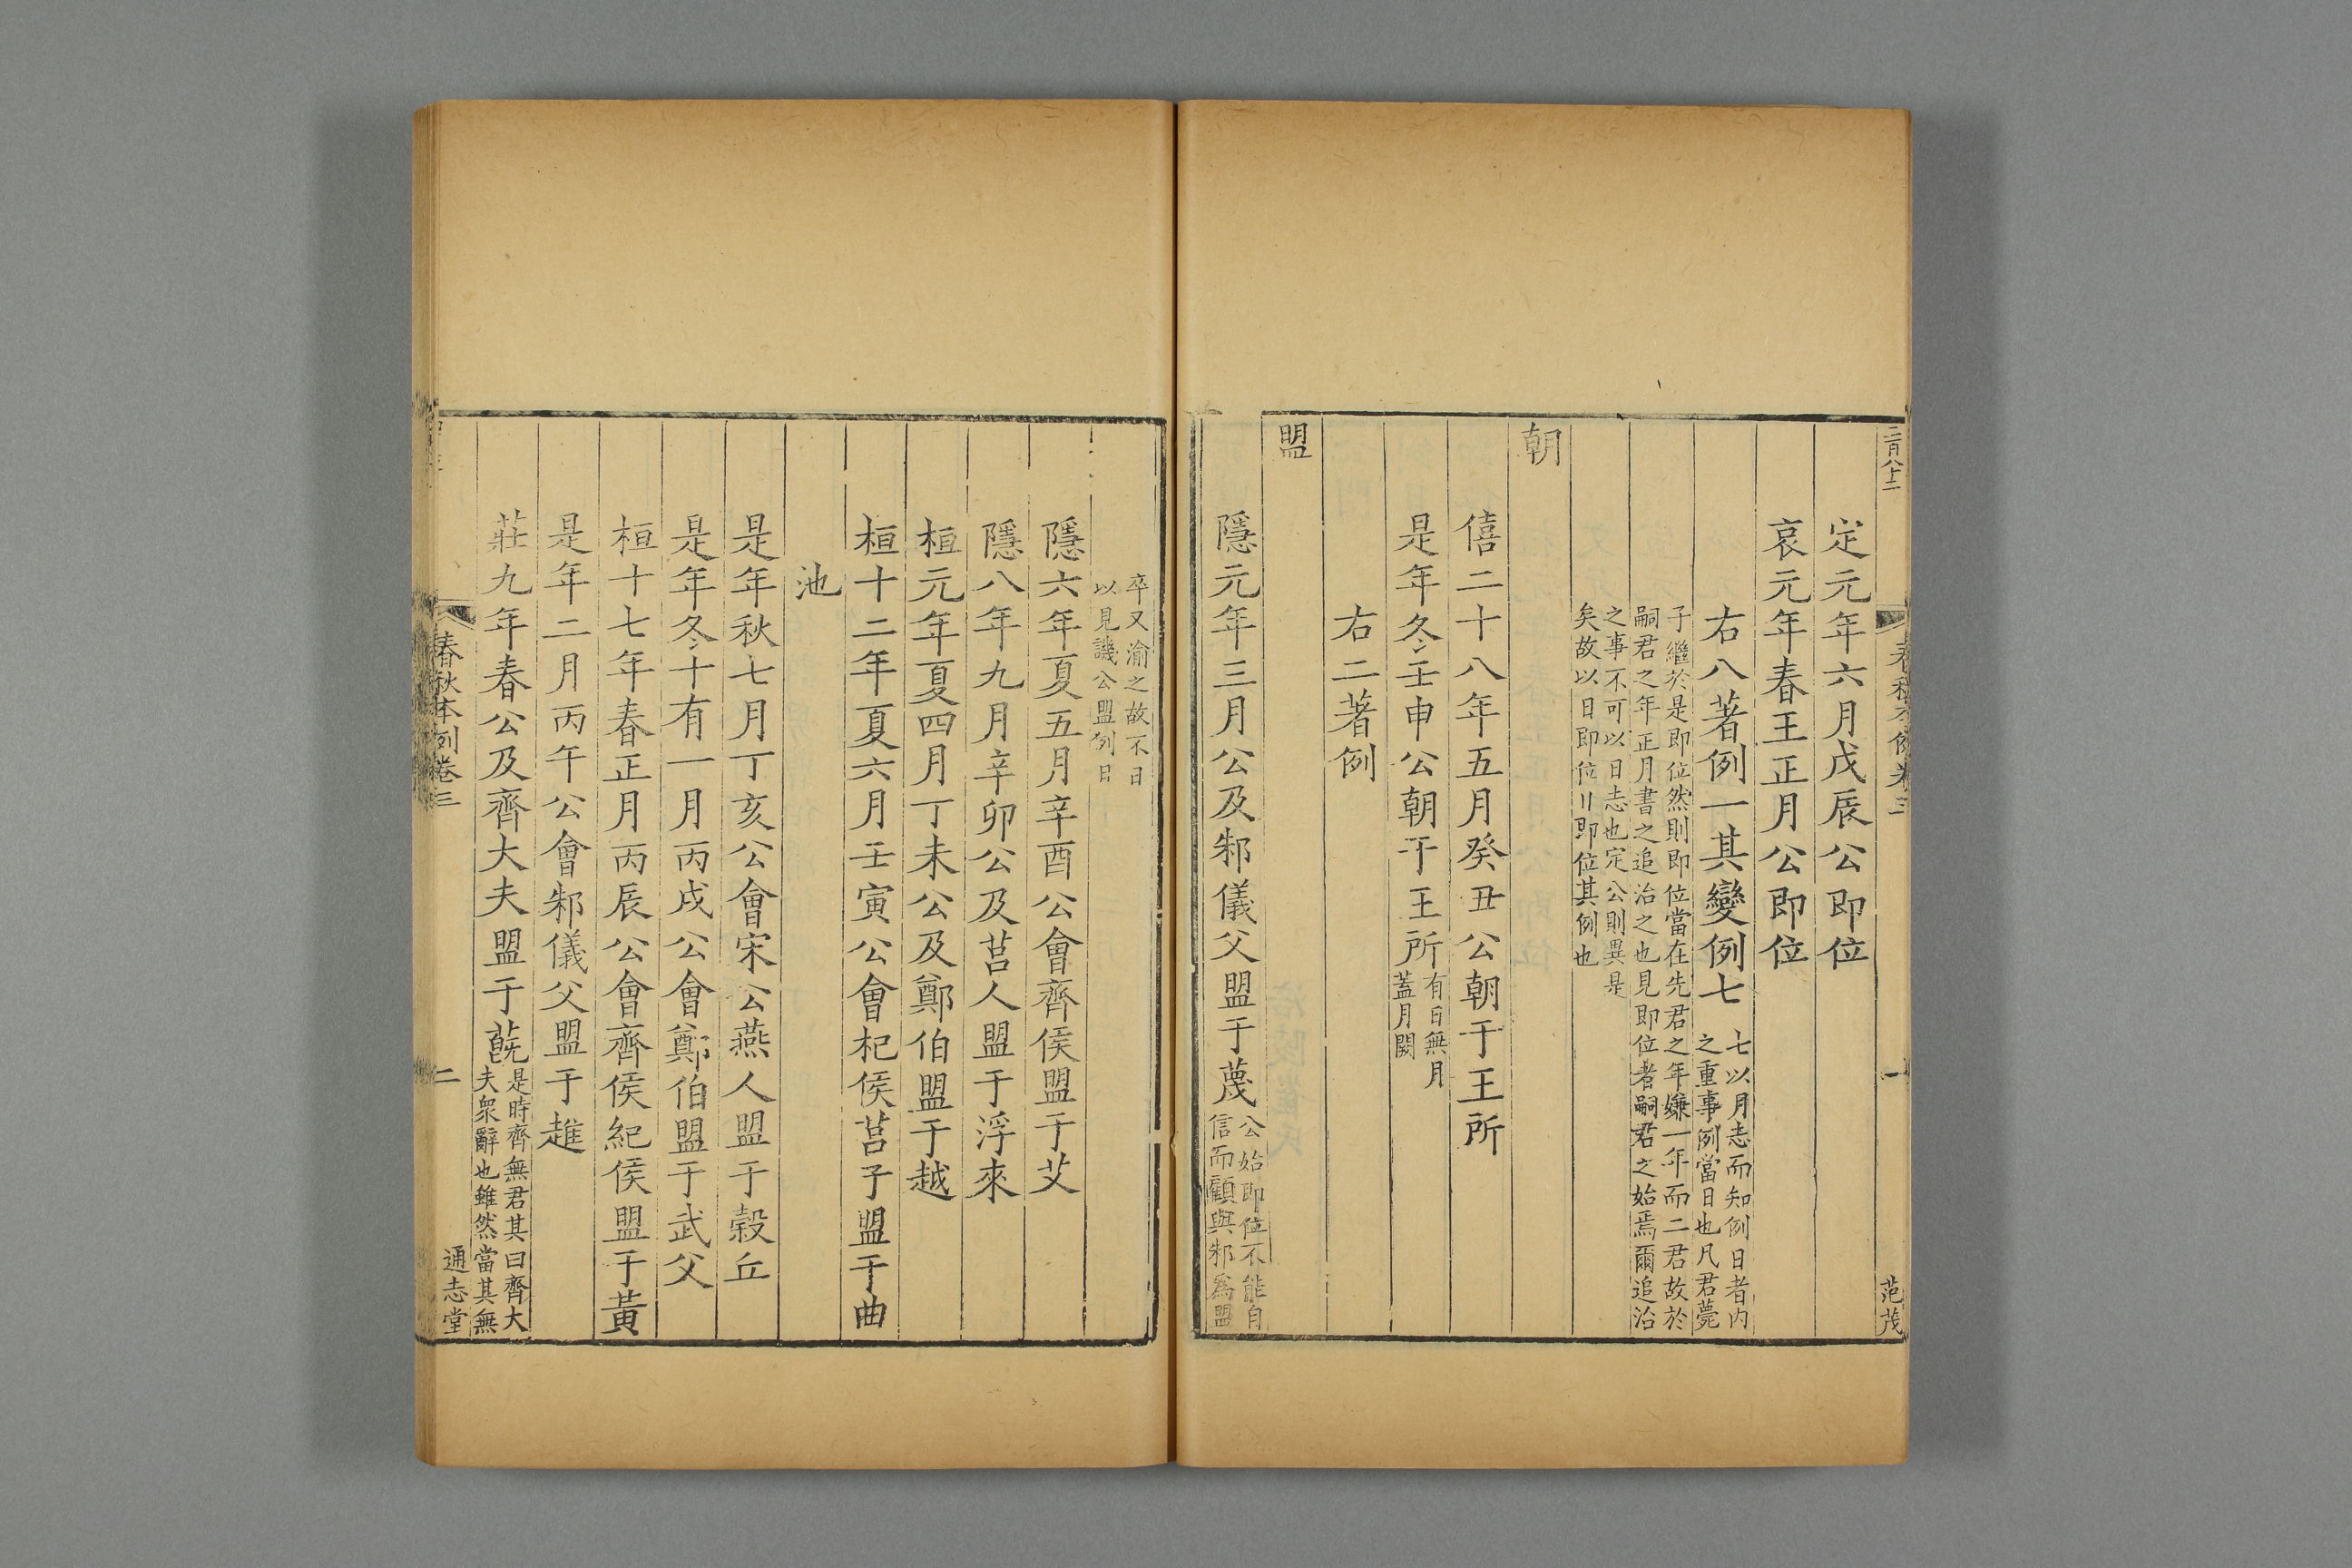 二百八十二
春秋本例卷三
一
范茂
定元年六月戊辰公即位
哀元年春王正月公即位
右八著例一其變例七
七以月志而知例日者内
之重事例當日也凡君薨
子繼於是即位然則即位當在先君之年嫌一年而二君故於
嗣君之年正月書之追治之也見即位者嗣君之始焉爾追治
之事不可以日志也定公則異是
矣故以日即位〃即位其例也
朝
僖二十八年五月癸丑公朝于王所
是年冬壬申公朝于王所
有日無月
蓋月闕
右二著例
盟
隱元年三月公及邾儀父盟于蔑
公始即位不能自
信而顧與邾爲盟
卒又渝之故不日
以見譏公盟例日
隱六年夏五月辛酉公會齊侯盟于艾
隱八年九月辛卯公及莒人盟于浮來
桓元年夏四月丁未公及鄭伯盟于越
桓十二年夏六月壬寅公會杞侯莒子盟于曲
池
是年秋七月丁亥公會宋公燕人盟于穀丘
是年冬十有一月丙戌公會鄭伯盟于武父
桓十七年春正月丙辰公會齊侯紀侯盟于黃
是年二月丙午公會邾儀父盟于趡
莊九年春公及齊大夫盟于蔇
是時齊無君其曰齊大
夫衆辭也雖然當其無
春秋本例卷三
二
通志堂